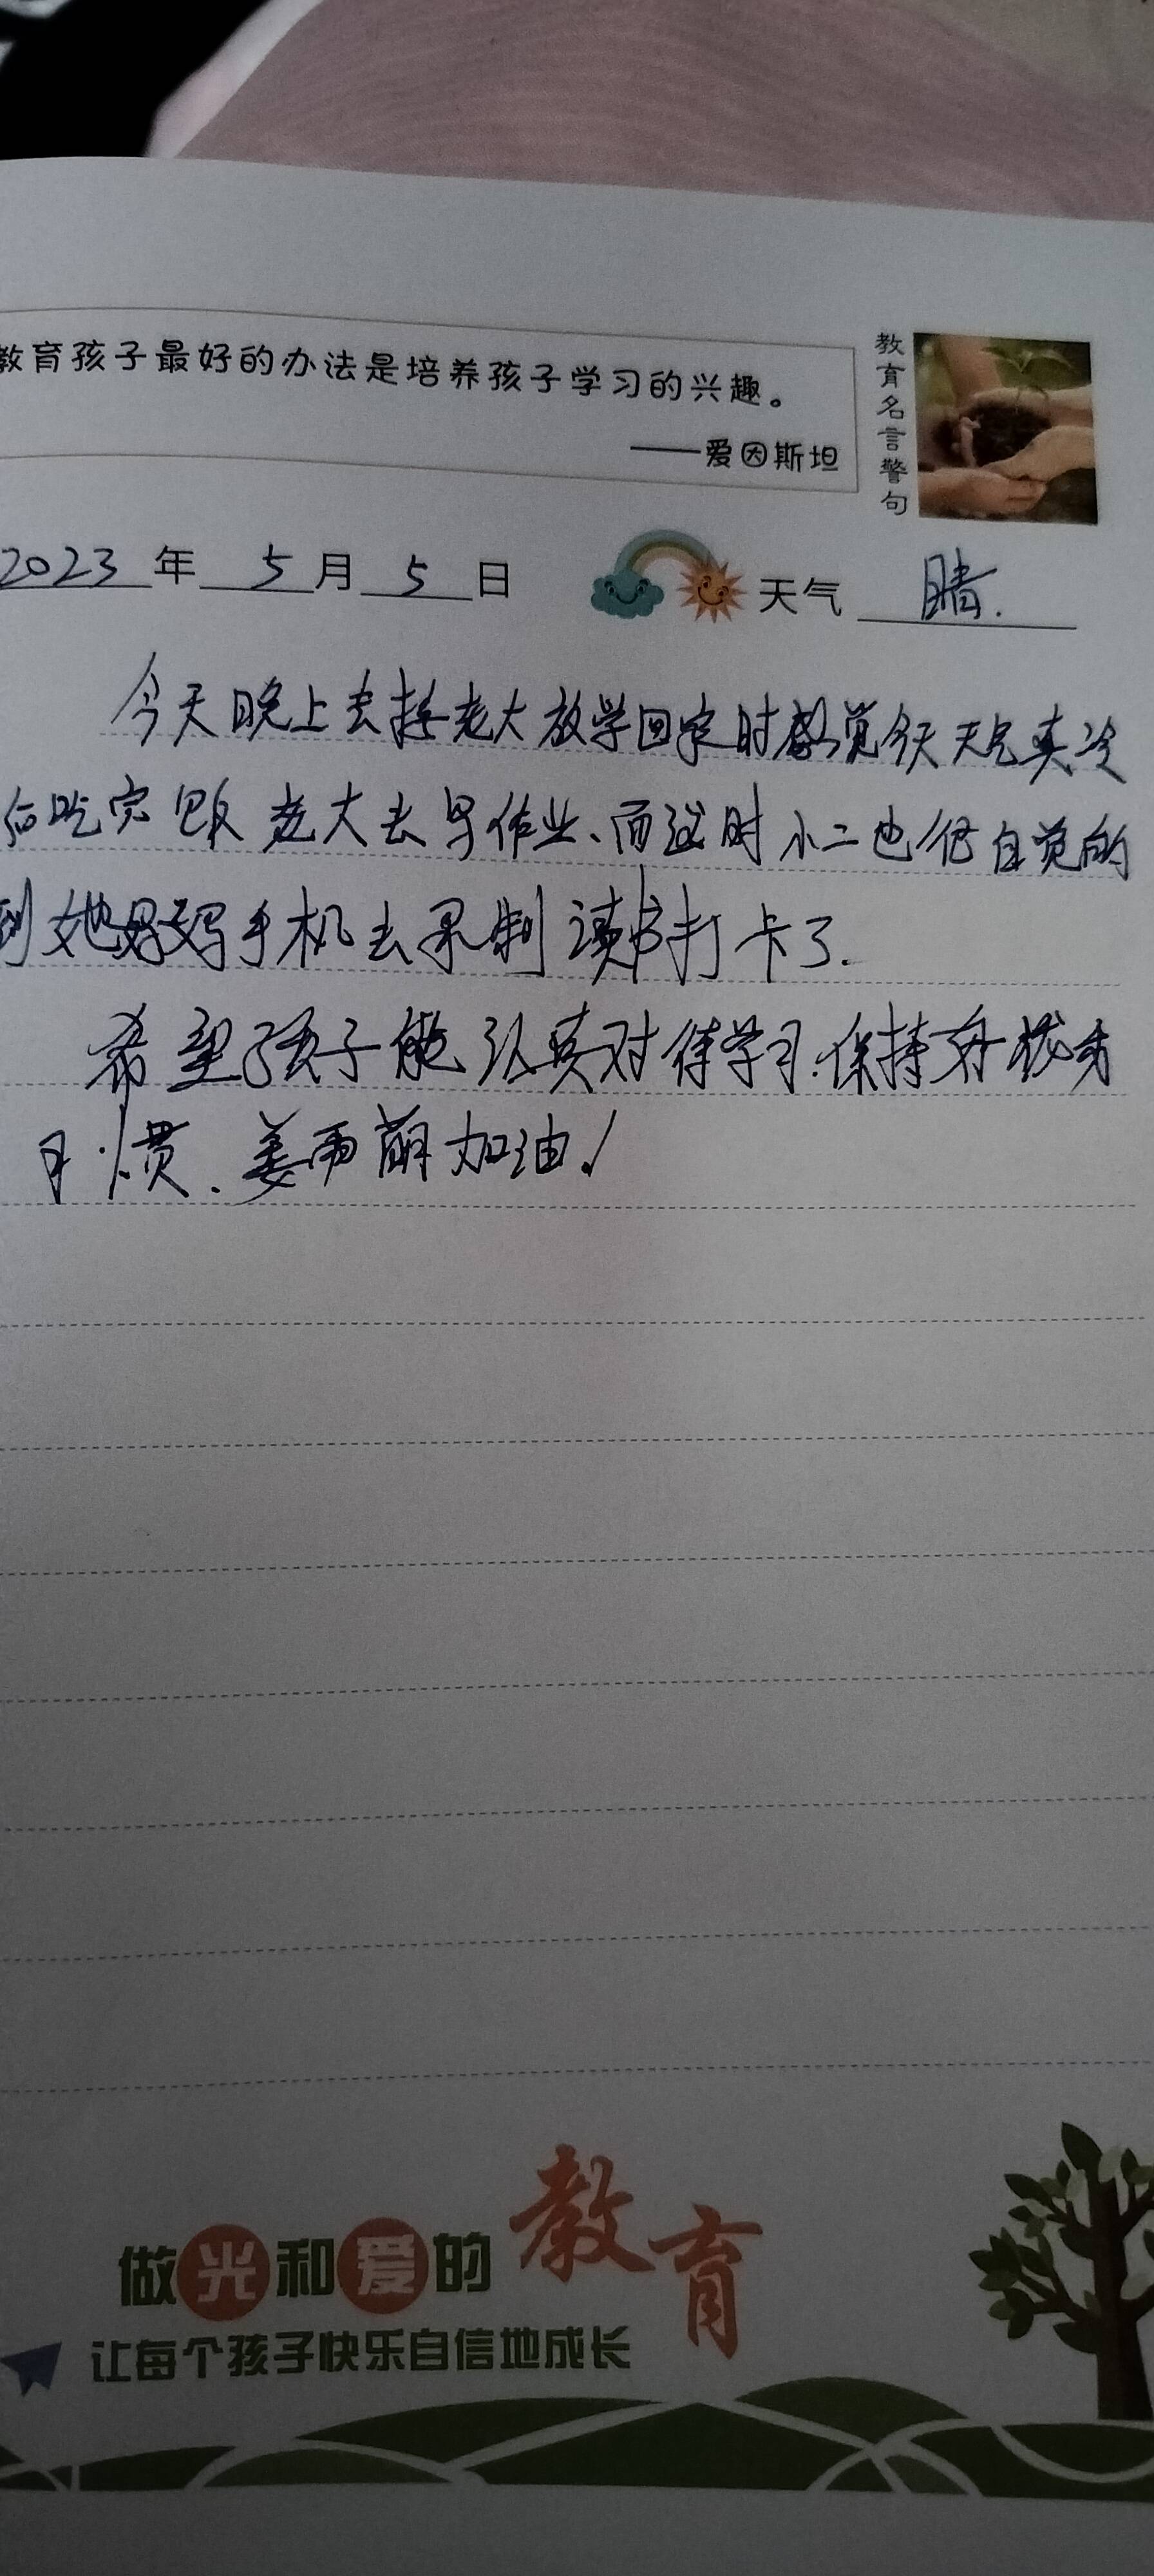 教育孩子最好的办法是培养孩子学习的兴趣。
——爱因斯坦
教育名言警句
2023年5月5日 天气 晴.
今天晚上去接老大放学回家时感觉今天天气真冷
后吃完饭老大去写作业、而这时小二也很自觉的
到她妈妈手机去录制读书打卡了.
希望孩子能认真对待学习.保持好
习惯.姜雨萌加油!
做光和爱的教育
让每个孩子快乐自信地成长